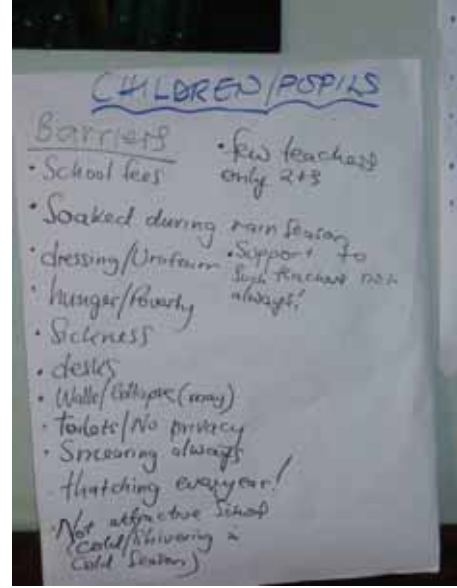 CHILDREN/PUPILS
Barriers
• School fees
• few teachers
only 2+3
• Soaked during rain season
• dressing/Uniform
• Support to
such teachers not
always!
• hunger/Poverty
• Sickness
• desks
• Walls/Collapse (may)
• toilets/No privacy
• Smearing always
thatching everyyear!
• Not attractive School
(cold/Shivering in
Cold Season)